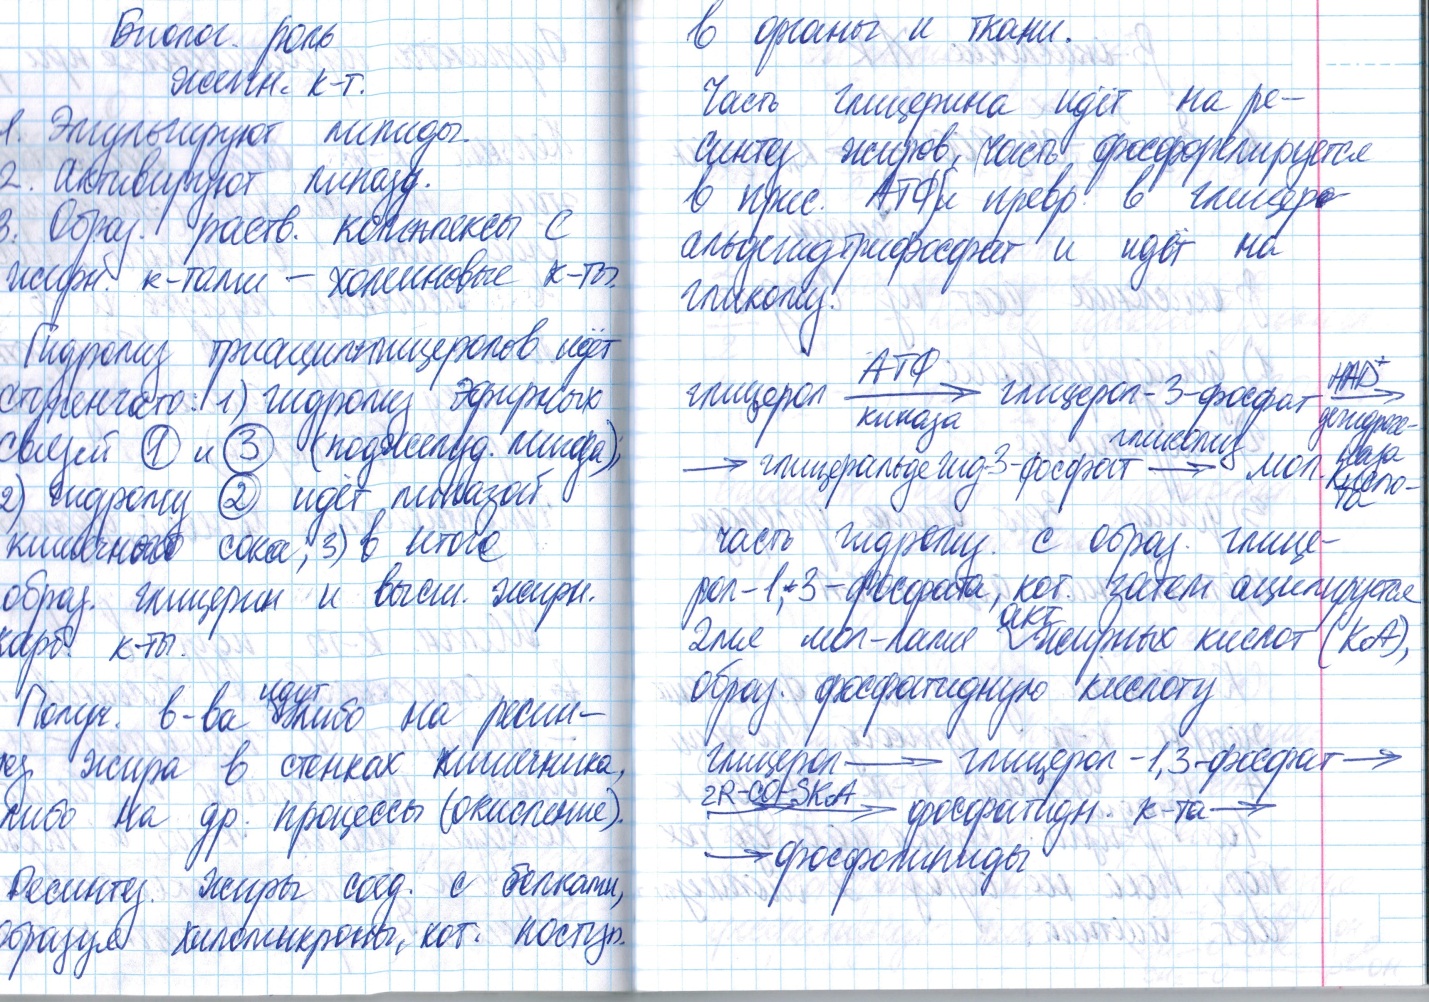 Биолог. роль
желчн. к-т.
1. Эмульгируют липиды.
2. Активируют липазу.
3. Образ. раств. комплексы с
жирн. к-тами – холеиновые к-ты.
Гидролиз триацилглицеролов идёт
ступенчато: 1) гидролиз эфирных
связей 1 и 3 (поджелуд. липаза);
2) гидролиз 2 идёт липазой
кишечного сока; 3) в итоге
образ. глицерин и высш. жирн.
карб. к-ты.
Получ. в-ва идут либо на ресин-
тез жира в стенках кишечника,
либо на др. процессы (окисление).
Ресинтез. жиры соед. с белками,
образуя хиломикроны, кот. поступ.
в органы и ткани.
Часть глицерина идёт на ре-
синтез жиров, часть фосфорилируется
в прис. АТФ и превр. в глицеро-
альдегидтрифосфат и идёт на
гликолиз.
глицерол АТФ киназа → глицерол-3-фосфат НАД+ дегидрогеназа →
→ глицеральдегид-3-фосфат гликолиз → мол. кисло-
та
часть гидролиз. с образ. глице-
рол-1,3-фосфата, кот. затем ацилируется
2мя мол-лами акт. жирных кислот (КА),
образ. фосфатидную кислоту
глицерол → глицерол-1,3-фосфат →
2R-CO-SКоА → фосфатидн. к-та →
→ фосфолипиды